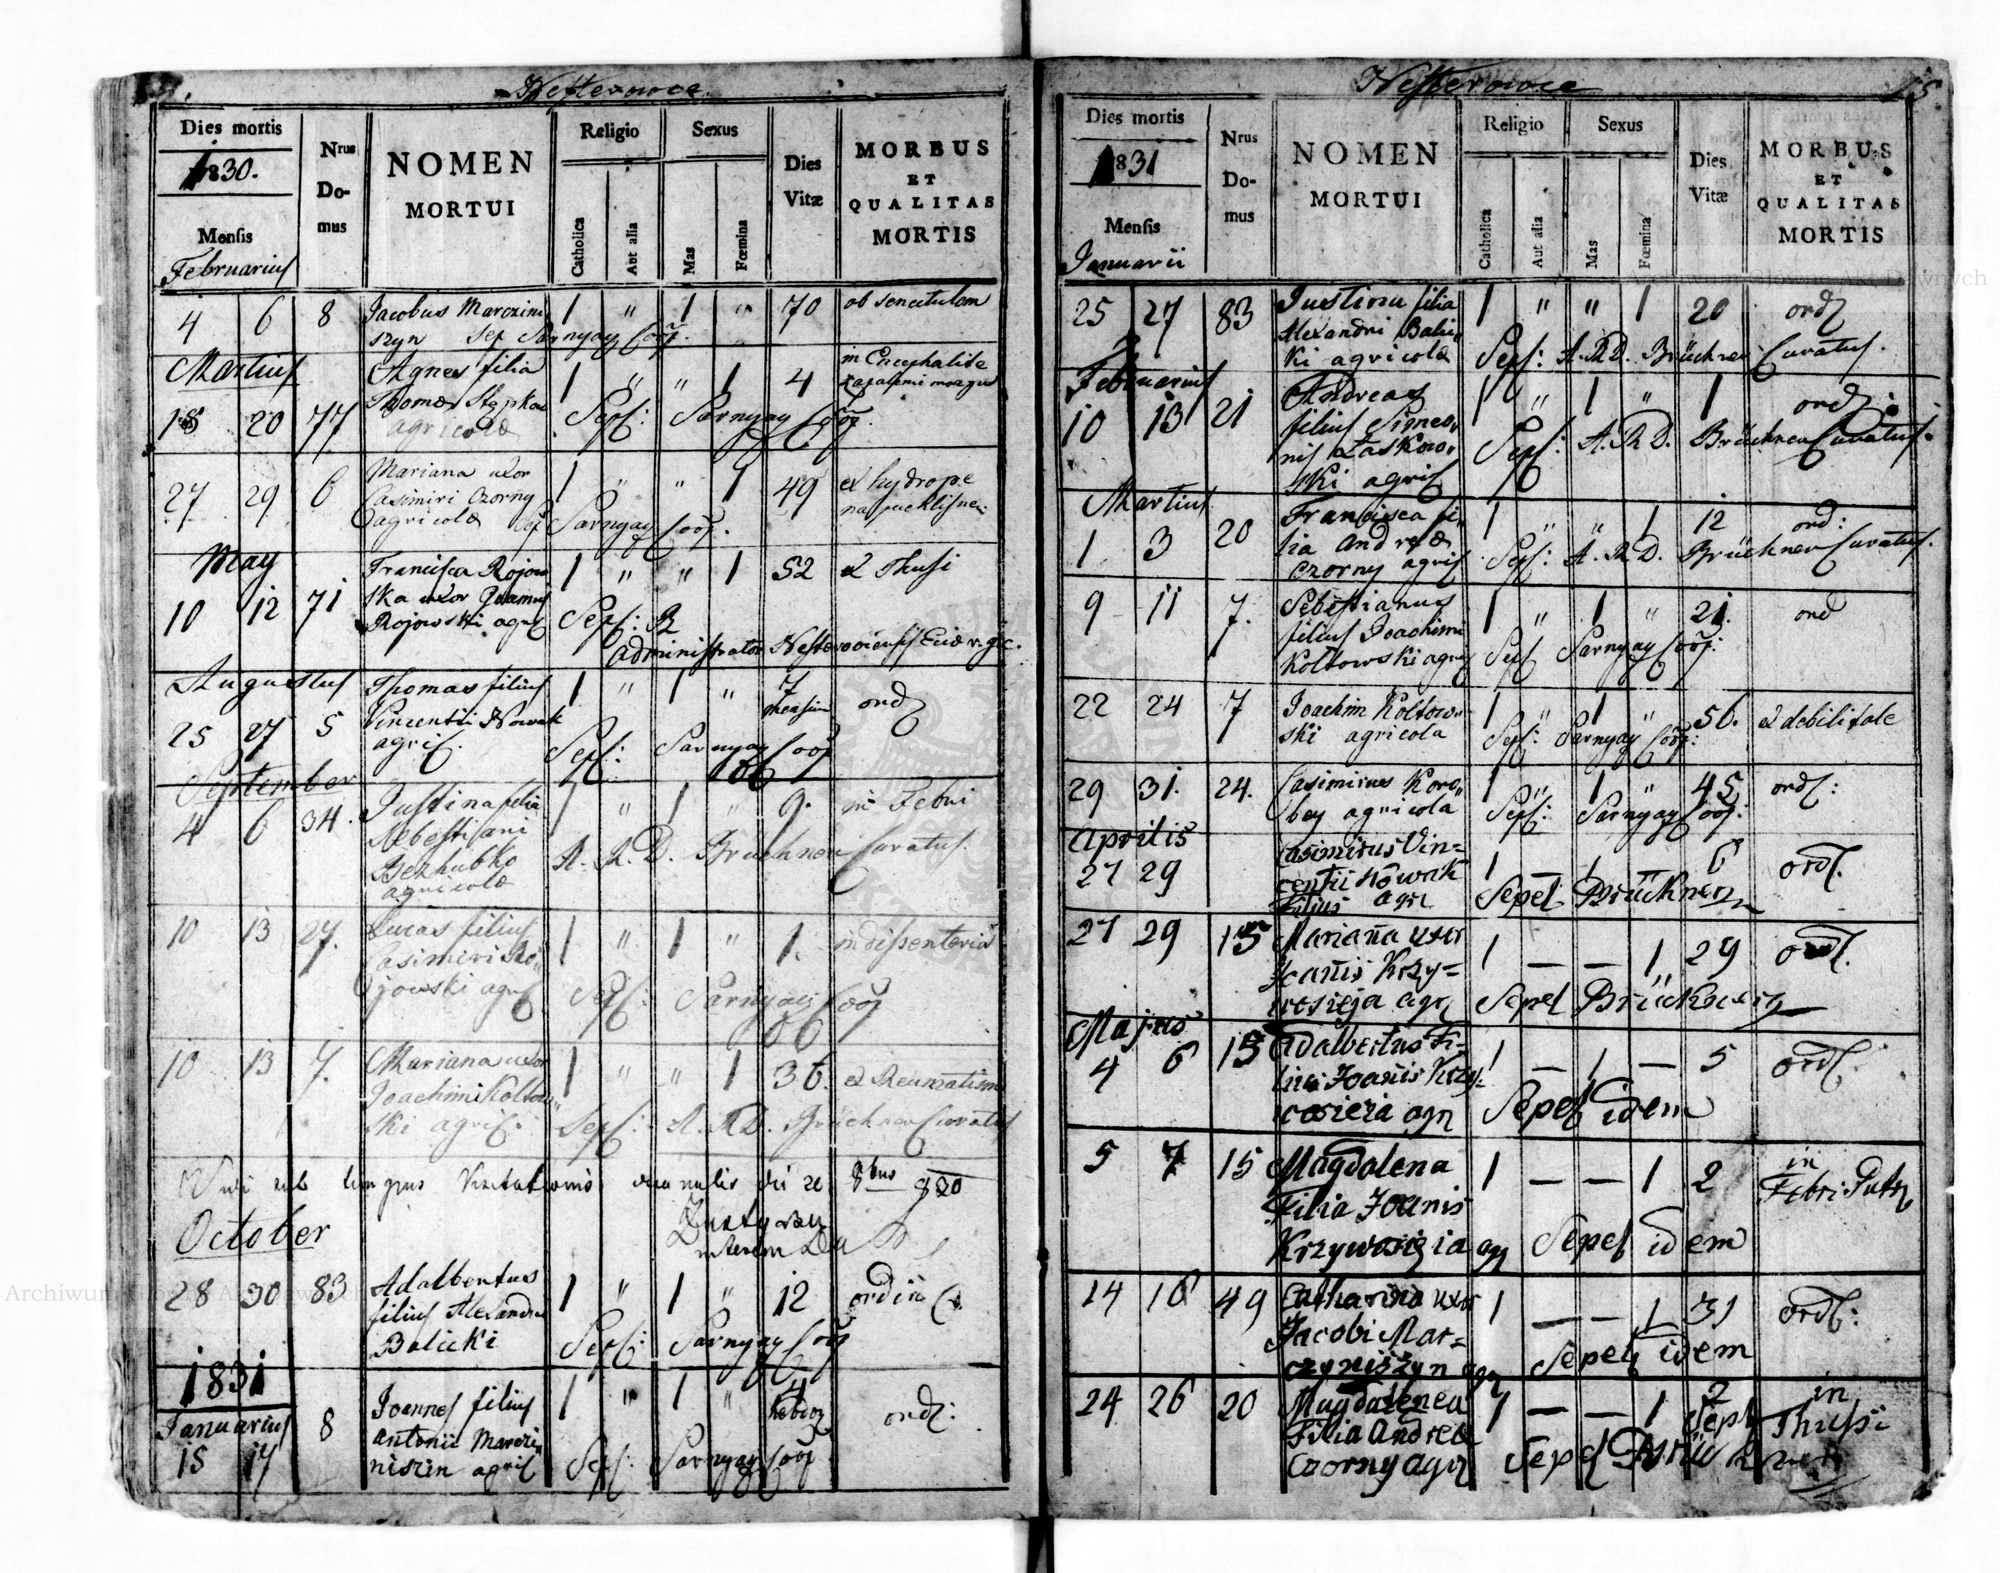 Nesterowce
Dies mortis
1830.
Mensis
Februarius
Nrus Domus
NOMEN
MORTUI
Religio
Catholica
Aut alia
Sexus
Mas
Fœmina
Dies
Vitæ
MORBUS
ET
QUALITAS
MORTIS
4 6 8 Jacobus Marczini 1 " 1 " 70 ob senectutem
szyn Sep Sarnyay Coop.
Martius
Agnes filia 1 " " 1 4 in Encephalite
18 20 77 Thomæ
agricolæ Sepf: Sarnyay Coop.
27 29 6 Mariana uxor 1 " " 1 49 ex hydrope
Casimiri Czorny
agricolæ Sarnyay Coop.
May
10 12 71 Francisca Rojow 1 " " 1 52 ex Thusi
ska uxor
Rojowski agris Sepf: R
administrator
Augustus
25 27 5 Thomas filius 1 " 1 " 7 ord
Vincentii Nowak
agris. Sepf: Sarnyay Coop
September
4 6 34. Justina filia 1 " 1 " 9. in Febri
Sebestiani
Bezhubko A. R. D. Brückner Curatus.
agricolæ
10 13 27. Lucas filius 1 " 1 " 1. in dissenteria
Casimiri Ro
jowski agris Sepf: Sarnyay Coop
10 13 7. Mariana uxor 1 " " 1 36. ex Reumatism
Joachimi Koltow
ski agris: Sepf: A. R. D. Brückner Curatus
October
28 30 83 Adalbertus 1 " 1 " 12 ordin
filius Alexandri
Balicki Sepf: Sarnyay Coop
1831
Januarius
15 17 8 Joannes filius 1 " 1 " ord:
Antonii Marczi
niszin agris Sepf: Sarnyay Coop
Nesterowce
15.
Dies mortis
1831
Mensis
Januarii
Nrus Domus
NOMEN
MORTUI
Religio
Catholica
Aut alia
Sexus
Mas
Fœmina
Dies
Vitæ
MORBUS
ET
QUALITAS
MORTIS
25 27 83 Justina filia 1 " " 1 20 ord
Alexandri Balic
ki agricolæ Sepf: A. R. D. Brückner Curatus.
Februarius
10 13 21 Andreas 1 " 1 " 1 ord
filius Simeo
nis Laskow Sepf: A. R. D. Brückner Curatus.
ski agris
Martius
1 3 20 Francisca fi 1 " " 1 12 ord:
lia Andreæ
Czorny agris Sepf: A. R. D. Brückner Curatus.
9 11 7. Sebestianus 1 " 1 " 21. ord
filius Joachimi
Koltowski agris Sepf Sarnyay Coop:
22 24 7 Joachim Koltow 1 " 1 " 56. ex debilitate
ski agricola Sepf: Sarnyay Coop:
29 31. 24. Casimirus Koro 1 " 1 " 45 ord:
bey agricola Sepf: Sarnyay Coop:
Aprilis
27 29 Casimirus Vin= 1 — 1 — 6 ord.
centii Nowak
Filius agr Sepel Brückner
27 29 15 Marianna uxor 1 — — 1 29 ord.
Joanis Krzy=
agr Sepel Brückner
Majus
4 6 15 Adalbertus Fi= 1 — 1 — 5 ord.
lius Joanis Krzy=
agr Sepel idem
5 7 15 Magdalena 1 — — 1 2 in
Filia Joanis Febri
agr Sepel idem
14 16 49 Catharina uxor 1 — — 1 31 ord:
Jacobi Mar=
czyniszyn agr Sepel idem
24 26 20 Magdalenea 1 — — 1 2 in
Filia Andreæ Sept Thussi
Czorny agr Sepel Brückner
Archiwum Główne Akt Dawnych
Archiwum Główne Akt Dawnych